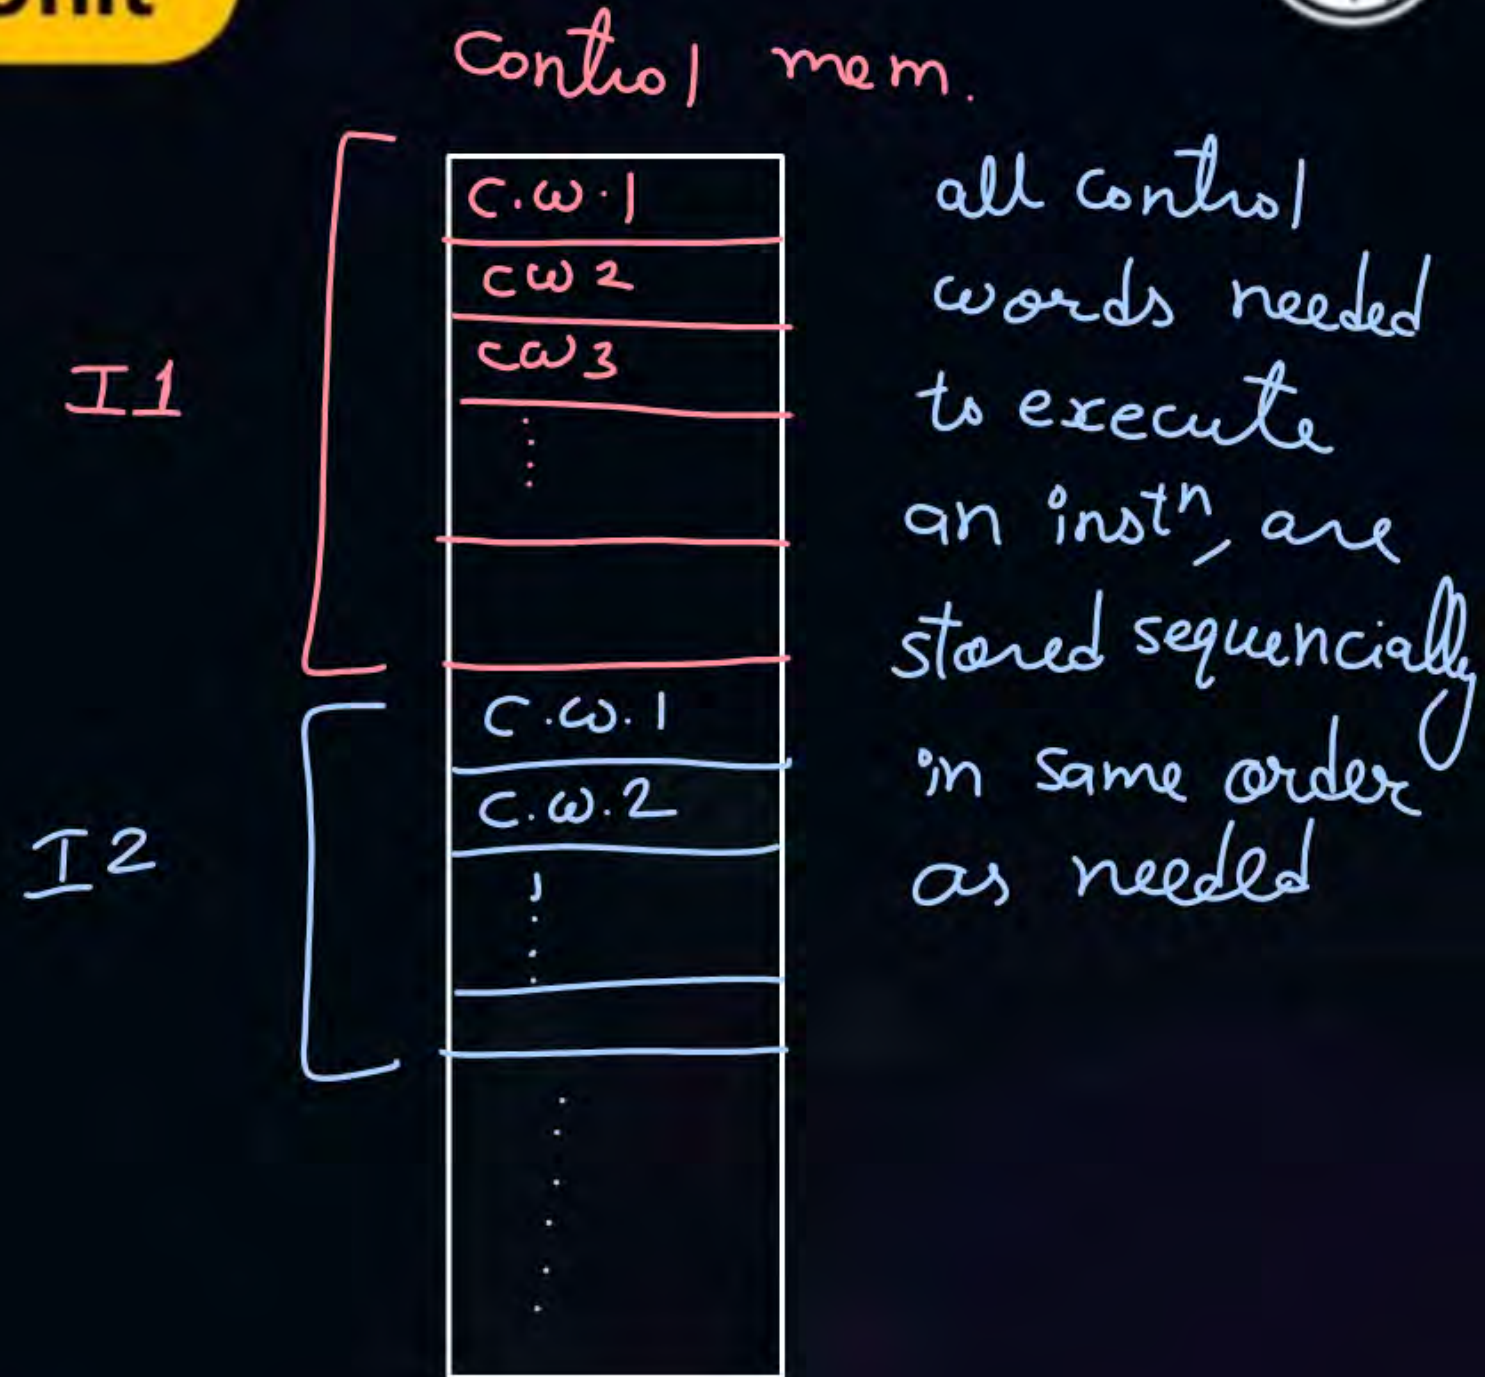 Unit
Control mem.
C.W.1
CW 2
CW 3
I1
C.W.1
C.W.2
I2
all control
words needed
to execute
an instⁿ, are
stored sequencially
in same order
as needed